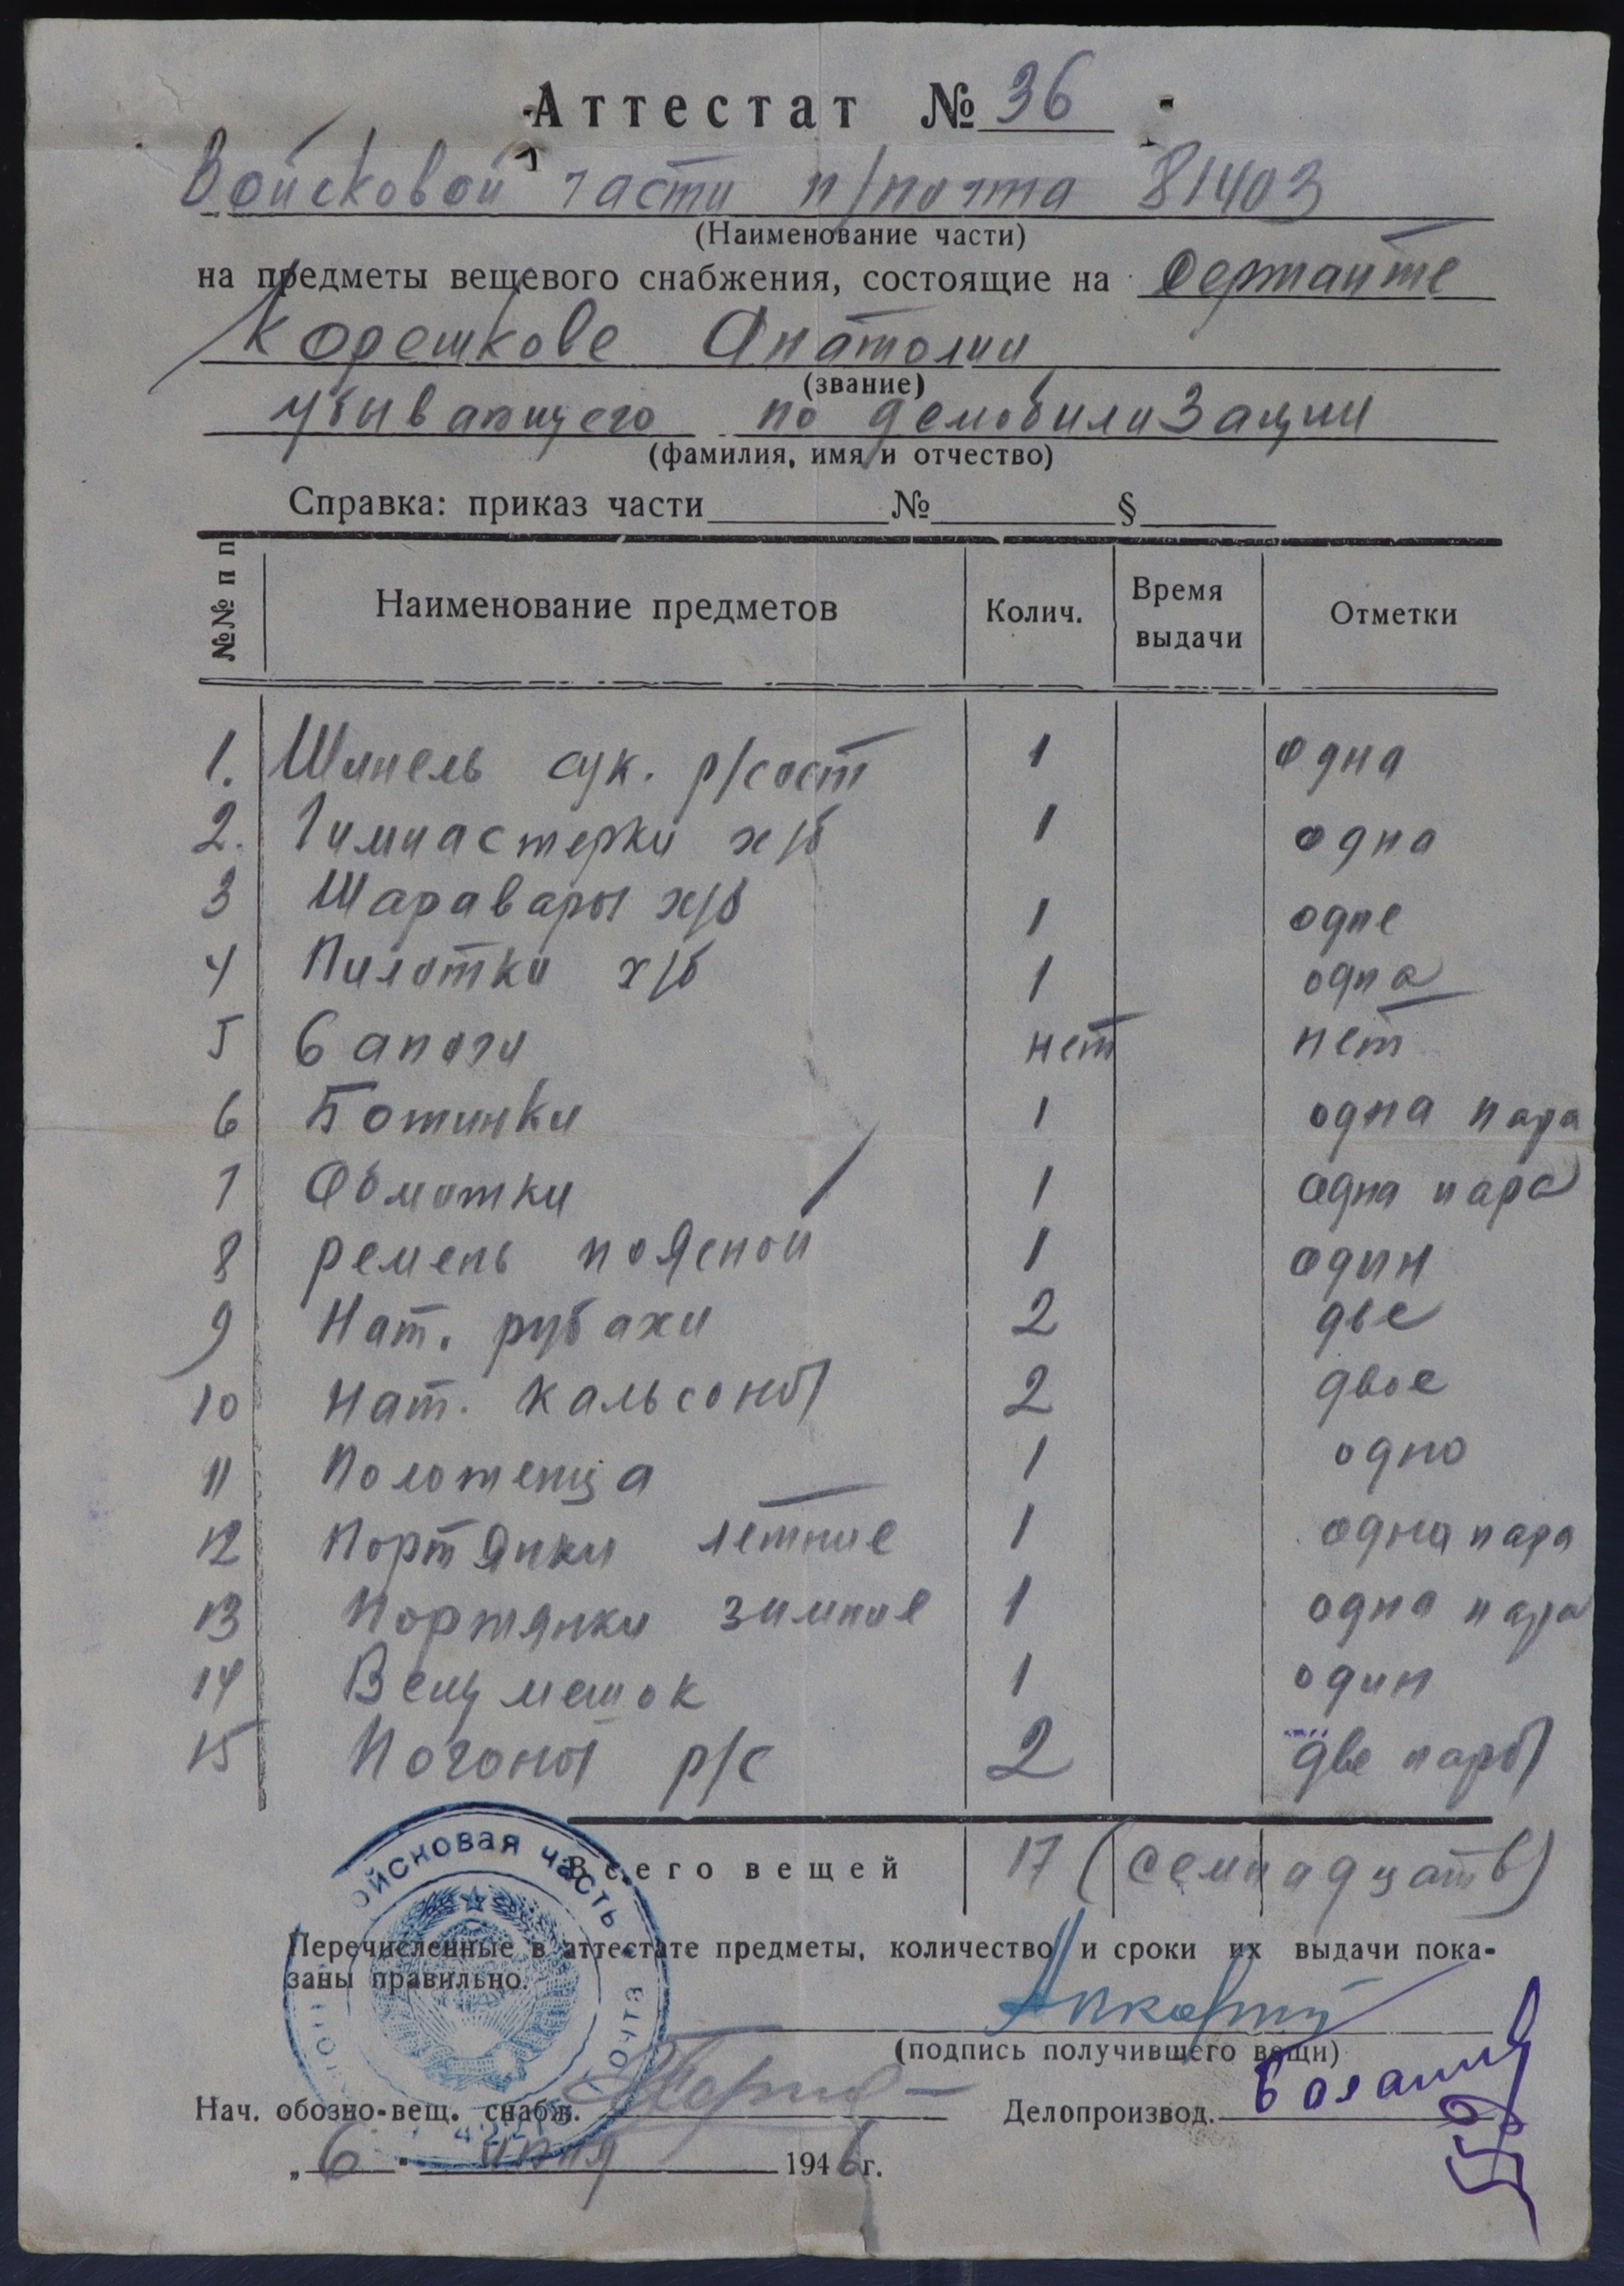 Аттестат № 36
Войсковой части п/почта 81403
(Наименование части)
на предметы вещевого снабжения, состоящие на Сержанте
Корешкове Анатолии
(звание)
убывающего по демобилизации
(фамилия, имя и отчество)
Справка: приказ части № §
№№ п п Наименование предметов Колич. Время выдачи Отметки
1. Шинель сук. р/сост 1 одна
2. Гимнастерки х/б 1 одна
3 Шаравары х/б 1 одне
4 Пилотки х/б 1 одна
5 Сапоги нет нет
6 Ботинки 1 одна пара
7 Обмотки 1 одна пара
8 ремень поясной 1 один
9 Нат. рубахи 2 две
10 Нат. кальсоны 2 двое
11 Полотенца 1 одно
12 Портянки летние 1 одна пара
13 Портянки зимние 1 одна пара
14 Вещмешок 1 один
15 Погоны р/с 2 две пары
Всего вещей 17 (семнадцать)
Перечисленные в аттестате предметы, количество и сроки их выдачи пока-
заны правильно.
(подпись получившего вещи)
Нач. обозно-вещ. снабж. Делопроизвод.
„6" 1946 г.
войсковая часть
почта